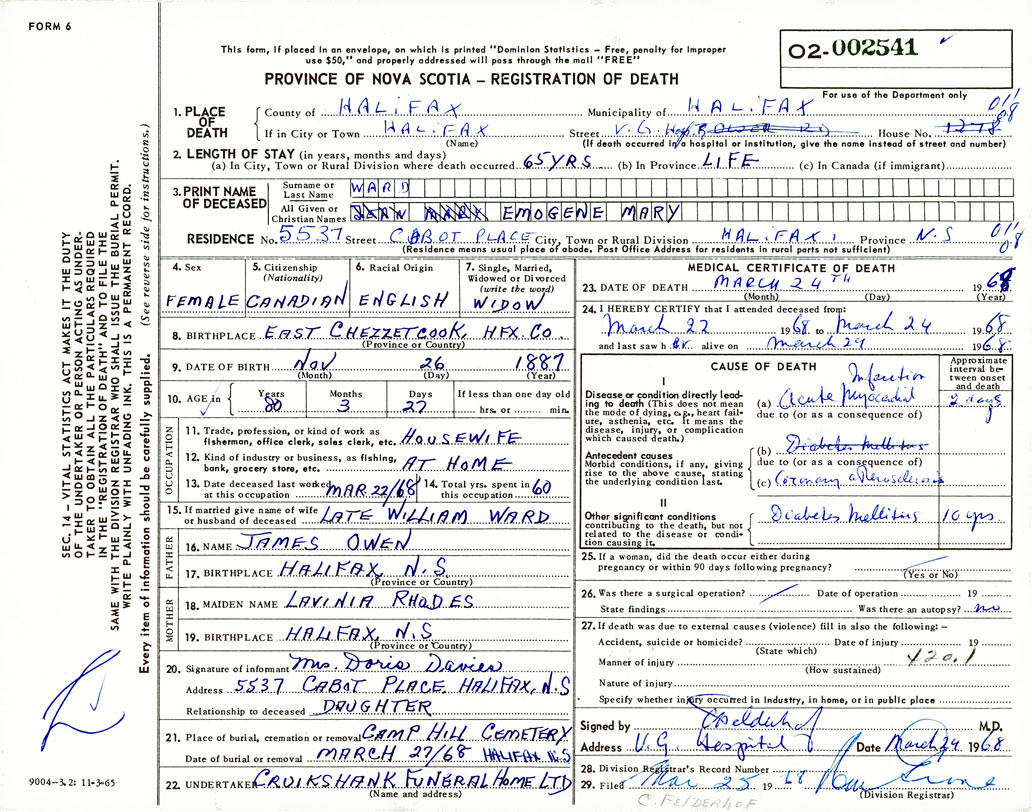 FORM 6
This form, if placed in an envelope, on which is printed "Dominion Statistics – Free, penalty for improper
use $50," and properly addressed will pass through the mail "FREE"
O2-002541
PROVINCE OF NOVA SCOTIA – REGISTRATION OF DEATH
For use of the Department only
1. PLACE OF DEATH
County of HALIFAX Municipality of HALIFAX 011
08
If in City or Town HALIFAX Street V.G. Hosp. House No. 1278
(Name) (If death occurred in a hospital or institution, give the name instead of street and number)
2. LENGTH OF STAY (in years, months and days)
(a) In City, Town or Rural Division where death occurred. 65 YRS (b) In Province LIFE (c) In Canada (if immigrant)
3. PRINT NAME OF DECEASED
Surname or Last Name WARD
All Given or Christian Names JEAN MARY EMOGENE MARY
RESIDENCE No. 5537 Street CABOT PLACE City, Town or Rural Division HALIFAX, Province N.S 011
08
(Residence means usual place of abode. Post Office Address for residents in rural parts not sufficient)
4. Sex
FEMALE
5. Citizenship
(Nationality)
CANADIAN
6. Racial Origin
ENGLISH
7. Single, Married,
Widowed or Divorced
(write the word)
WIDOW
8. BIRTHPLACE EAST CHEZZETCOOK, HFX. CO.
(Province or Country)
9. DATE OF BIRTH NOV 26 1887
(Month) (Day) (Year)
10. AGE in Years Months Days If less than one day old
80 3 27 hrs. or min.
OCCUPATION
11. Trade, profession or kind of work as
fisherman, office clerk, sales clerk, etc. HOUSEWIFE
12. Kind of industry or business, as fishing,
bank, grocery store, etc. AT HOME
13. Date deceased last worked
at this occupation MAR 22/68
14. Total yrs. spent in
this occupation 60
15. If married give name of wife
or husband of deceased LATE WILLIAM WARD
FATHER
16. NAME JAMES OWEN
17. BIRTHPLACE HALIFAX, N.S.
(Province or Country)
MOTHER
18. MAIDEN NAME LAVINIA RHODES
19. BIRTHPLACE HALIFAX, N.S
(Province or Country)
20. Signature of informant Mrs. Doris Davies
Address 5537 CABOT PLACE. HALIFAX, N.S
Relationship to deceased DAUGHTER
21. Place of burial, cremation or removal CAMP HILL CEMETERY
Date of burial or removal MARCH 27/68 HALIFAX N.S
22. UNDERTAKER CRUIKSHANK FUNERAL HOME LTD
(Name and address)
MEDICAL CERTIFICATE OF DEATH
23. DATE OF DEATH MARCH 24TH 1968
(Month) (Day) (Year)
24. I HEREBY CERTIFY that I attended deceased from:
March 22 1968 to March 24 1968
and last saw her alive on March 24 1968
CAUSE OF DEATH
Approximate interval between onset and death
I
Disease or condition directly leading to death (This does not mean
the mode of dying, e.g., heart failure, asthenia, etc. It means the
disease, injury, or complication
which caused death.)
(a) Acute Myocardial Infarction 2 days
due to (or as a consequence of)
Antecedent causes
Morbid conditions, if any, giving
rise to the above cause, stating
the underlying condition last.
(b) Diabetes Mellitus
due to (or as a consequence of)
(c) Coronary atherosclerosis
II
Other significant conditions
contributing to the death, but not
related to the disease or condition causing it.
Diabetes Mellitus 10 yrs.
25. If a woman, did the death occur either during
pregnancy or within 90 days following pregnancy?
(Yes or No)
26. Was there a surgical operation? Date of operation 19
State findings Was there an autopsy? no
27. If death was due to external causes (violence) fill in also the following: –
Accident, suicide or homicide? Date of injury 19
(State which)
Manner of injury 420.1
(How sustained)
Nature of injury
Specify whether injury occurred in Industry, in home, or in public place
Signed by CFelderhof M.D.
Address V.G. Hospital Date March 24 1968
28. Division Registrar's Record Number
29. Filed Mar 25 1968
(Division Registrar)
C. FELDERHOF
SEC. 14 – VITAL STATISTICS ACT MAKES IT THE DUTY
OF THE UNDERTAKER OR PERSON ACTING AS UNDER-
TAKER TO OBTAIN ALL THE PARTICULARS REQUIRED
IN THE "REGISTRATION OF DEATH" AND TO FILE THE
SAME WITH THE DIVISION REGISTRAR WHO SHALL ISSUE THE BURIAL PERMIT.
WRITE PLAINLY WITH UNFADING INK. THIS IS A PERMANENT RECORD.
Every item of information should be carefully supplied. (See reverse side for instructions.)
9004–3.2: 11-3-65